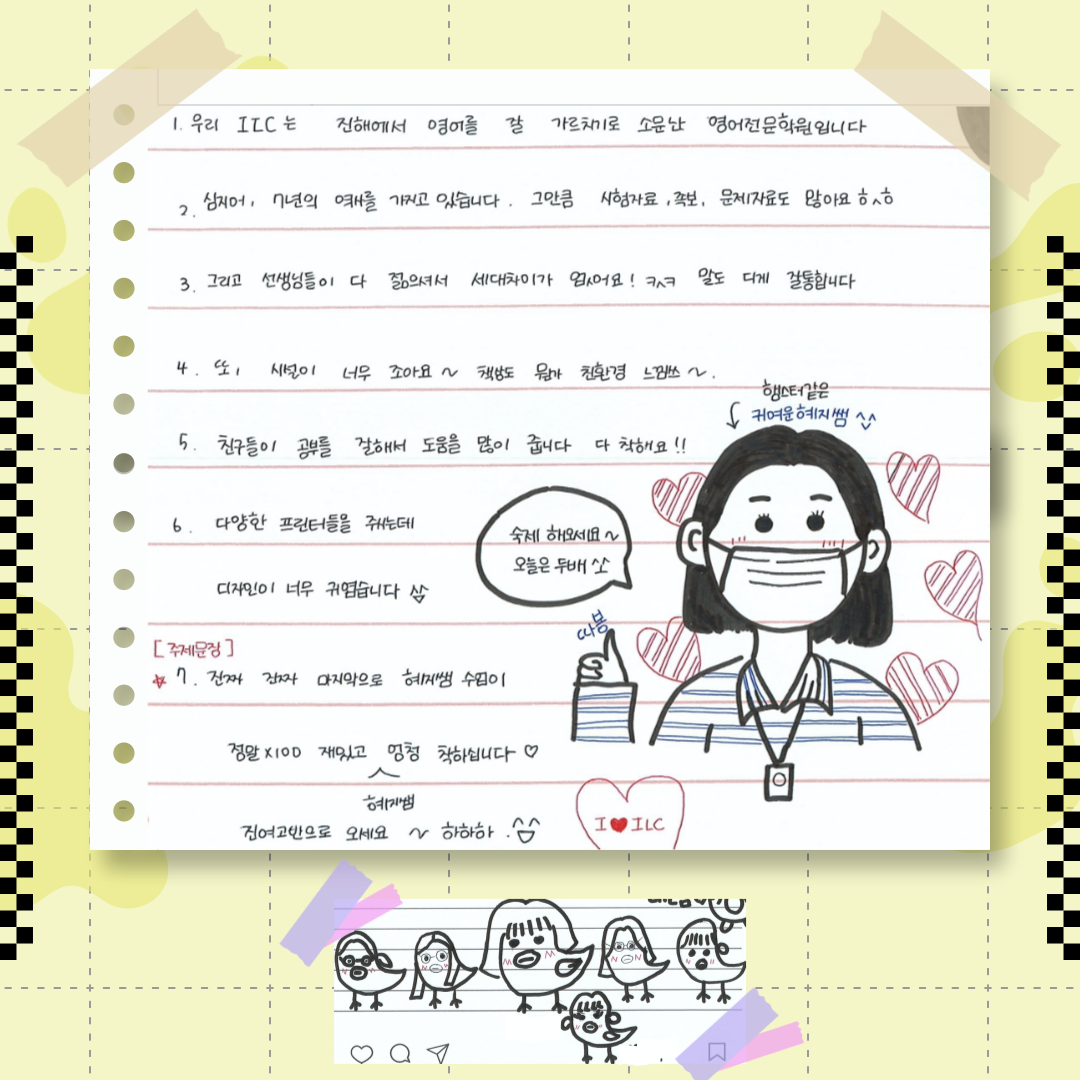 1. 우리 ILC는 진해에서 영어를 잘 가르치기로 소문난 영어전문학원입니다
2. 심지어, 7년의 역사를 가지고 있습니다. 그만큼 시험자료, 족보, 문제자료도 많아요 ㅎㅅㅎ
3. 그리고 선생님들이 다 젊으셔서 세대차이가 없어요! ㅋㅅㅋ 말도 디게 잘통합니다
4. 또, 시설이 너무 조아요~ 책상도 뭔가 친환경 느낌쓰~.
햄스터같은
귀여운 혜지쌤 ^^
5. 친구들이 공부를 잘해서 도움을 많이 줍니다 다 착해요!!
6. 다양한 프린터들을 주는데
숙제 해오세요~
오늘은 두배
디자인이 너무 귀엽습니다
따봉
[주제문장]
7. 진짜 진짜 마지막으로 혜지쌤 수업이
정말 x100 재밌고 엄청 착하십니다 ♡
혜지쌤
진여고반으로 오세요 ~ 하하하.
I ♥ ILC